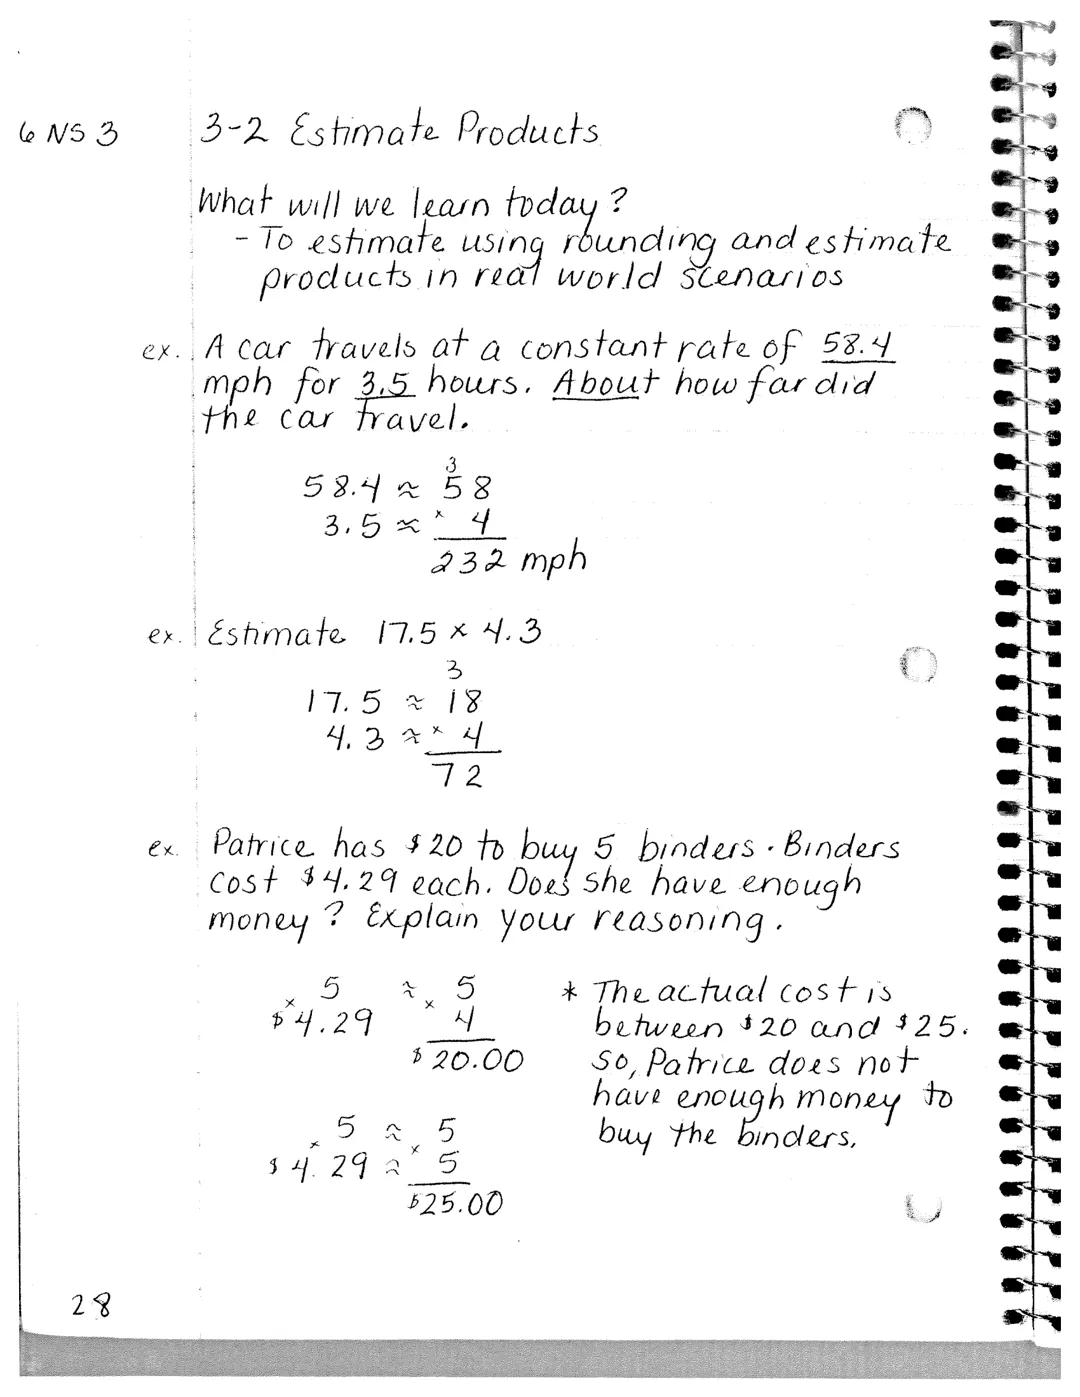 6 NS 3
3-2 Estimate Products
What will we learn today?
- To estimate using rounding and estimate
products in real world scenarios
ex. A car travels at a constant rate of 58.4
mph for 3.5 hours. About how far did
the car travel.
3
58.4 ≈ 58
3.5 ≈ × 4
232 mph
ex. Estimate 17.5 × 4.3
3
17.5 ≈ 18
4.3 ≈ × 4
72
ex. Patrice has $20 to buy 5 binders. Binders
cost $4.29 each. Does she have enough
money? Explain your reasoning.
5 ≈ 5
× $4.29 × 4
$20.00
5 ≈ 5
× $4.29 ≈ × 5
$25.00
* The actual cost is
between $20 and $25.
So, Patrice does not
have enough money to
buy the binders.
28